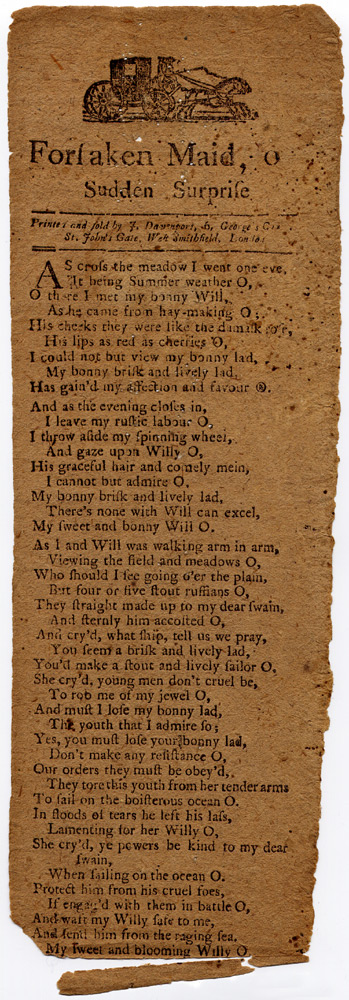 Forſaken Maid, o
Sudden Surpriſe
Printed and ſold by J. Davenport, 6, George's Co
St. John's Gate, Weſt Smithfield, London
AS croſs the meadow I went one eve,
It being Summer weather O,
O there I met my bonny Will,
As he came from hay-making O;
His cheeks they were like the damaſk roſe,
His lips as red as cherries O,
I could not but view my bonny lad,
My bonny briſk and lively lad,
Has gain'd my affection and favour O.
And as the evening cloſes in,
I leave my ruſtic labour O,
I throw aſide my ſpinning wheel,
And gaze upon Willy O,
His graceful hair and comely mein,
I cannot but admire O,
My bonny briſk and lively lad,
There's none with Will can excel,
My ſweet and bonny Will O.
As I and Will was walking arm in arm,
Viewing the field and meadows O,
Who ſhould I ſee going o'er the plain,
But four or five ſtout ruffians O,
They ſtraight made up to my dear ſwain,
And ſternly him accoſted O,
And cry'd, what ſhip, tell us we pray,
You ſeem a briſk and lively lad,
You'd make a ſtout and lively ſailor O.
She cry'd, young men don't cruel be,
To rob me of my jewel O,
And muſt I loſe my bonny lad,
The youth that I admire ſo;
Yes, you muſt loſe your bonny lad,
Don't make any reſiſtance O,
Our orders they muſt be obey'd,
They tore this youth from her tender arms
To ſail on the boiſterous ocean O.
In floods of tears he left his laſs,
Lamenting for her Willy O,
She cry'd, ye powers be kind to my dear
ſwain,
When ſailing on the ocean O.
Protect him from his cruel foes,
If engag'd with them in battle O,
And waft my Willy ſafe to me,
And ſend him from the raging ſea,
My ſweet and blooming Willy O